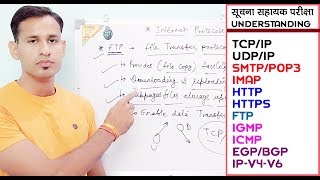 Internet Protocols
* FTP - file Transfer protocol
Provides (file copy) facility
Downloading & Uploading
Webpages files always up
To Enable data Transfer
TCP
सूचना सहायक परीक्षा
UNDERSTANDING
TCP/IP
UDP/IP
SMTP/POP3
IMAP
HTTP
HTTPS
FTP
IGMP
ICMP
EGP/BGP
IP-V4-V6